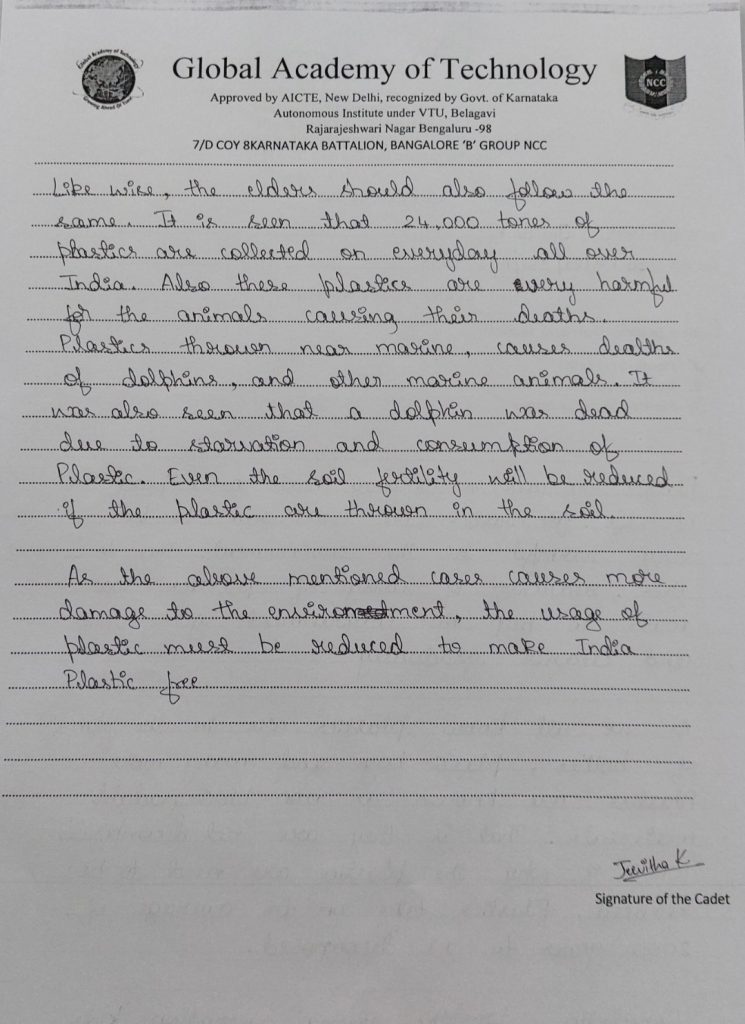 Global Academy of Technology
Approved by AICTE, New Delhi, recognized by Govt. of Karnataka
Autonomous Institute under VTU, Belagavi
Rajarajeshwari Nagar Bengaluru -98
7/D COY 8KARNATAKA BATTALION, BANGALORE 'B' GROUP NCC
Global Academy of Technology
Growing Ahead Of Time
NCC
Like wise, the elders should also follow the
same. It is seen that 24,000 tones of
plastics are collected on everyday all over
India. Also these plastics are very harmful
for the animals causing their deaths.
Plastics thrown near marine, causes deaths
of dolphins, and other marine animals. It
was also seen that a dolphin was dead
due to starvation and consumption of
Plastic. Even the soil fertility will be reduced
if the plastic are thrown in the soil.
As the above mentioned cases causes more
damage to the environment, the usage of
plastic must be reduced to make India
Plastic free
Jeevitha K
Signature of the Cadet